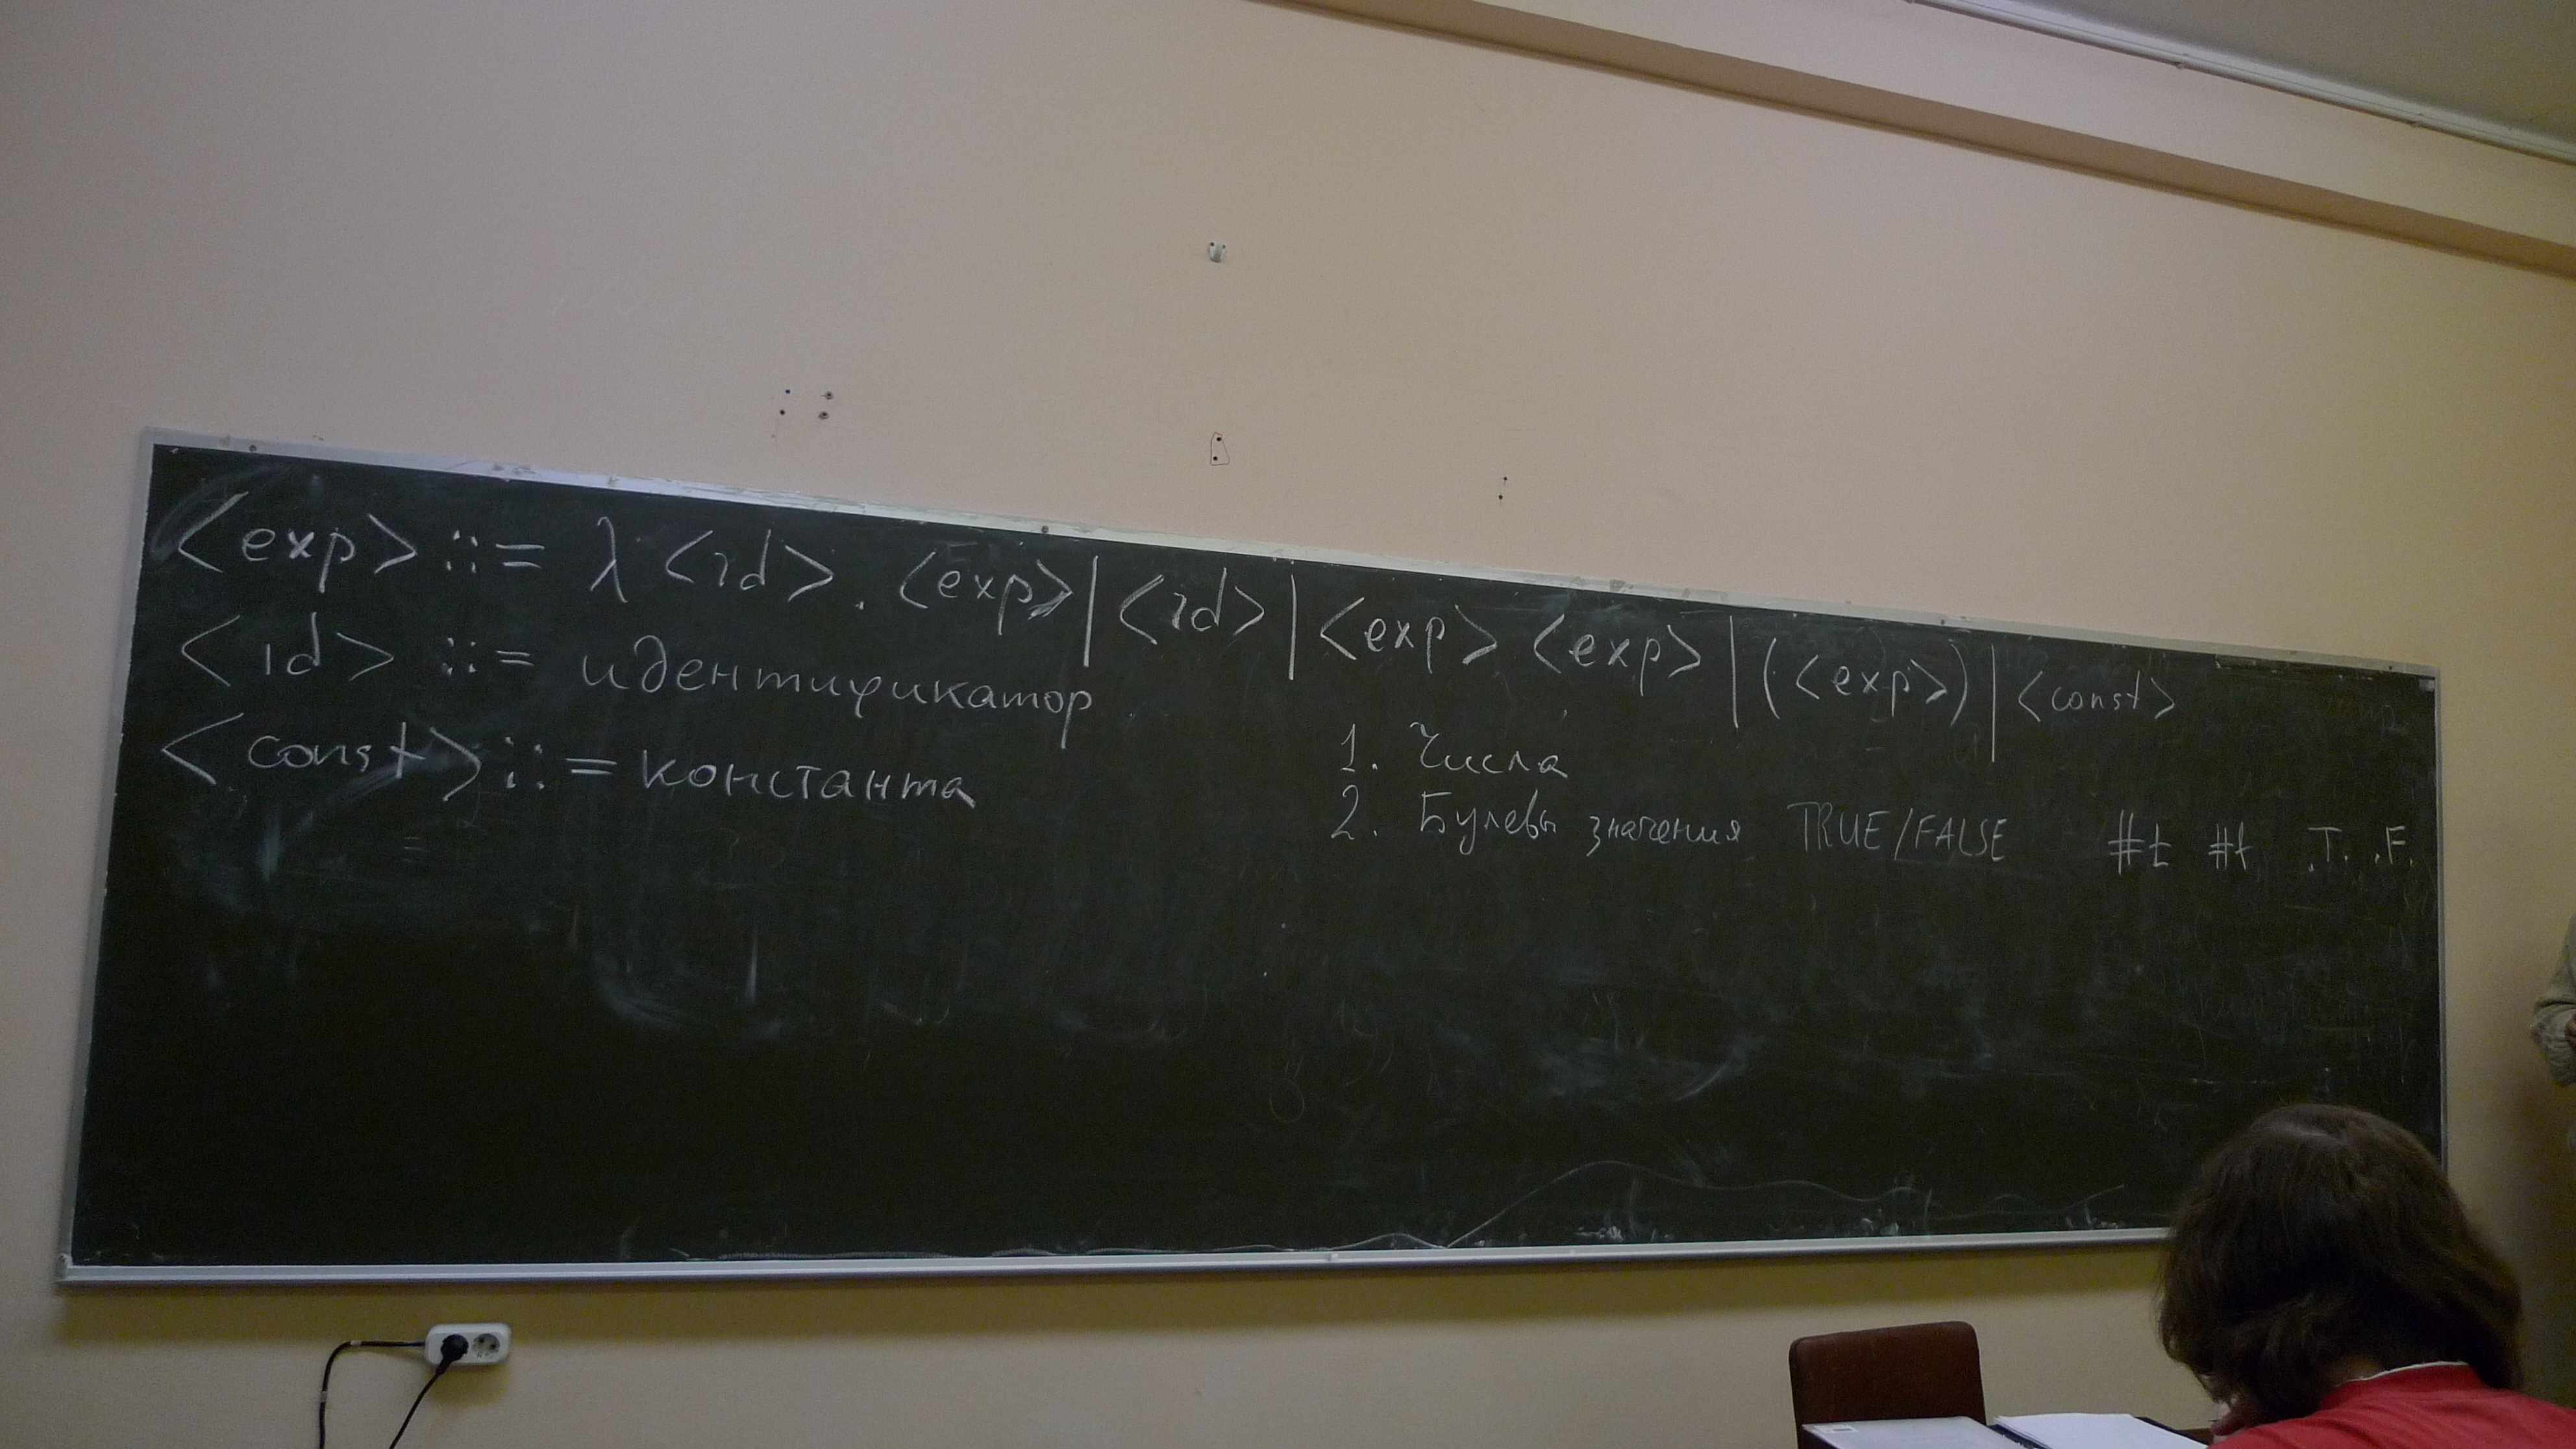 <exp> ::= λ <id>. <exp> | <id> | <exp> <exp> | (<exp>) | <const>
<id> ::= идентификатор
<const> ::= константа
1. Числа
2. Булевы значения TRUE/FALSE #t #f .T. .F.